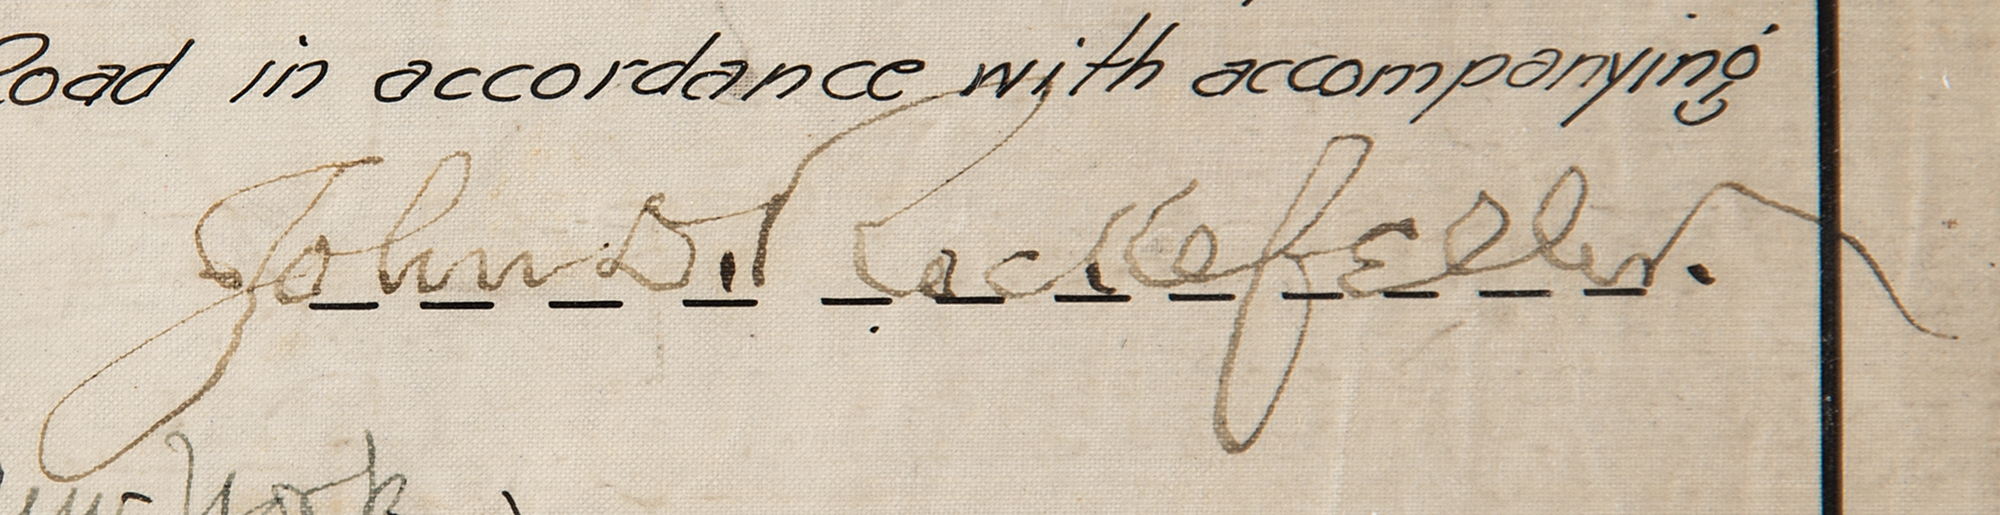 Road in accordance with accompanying
John D. Rockefeller.
New York